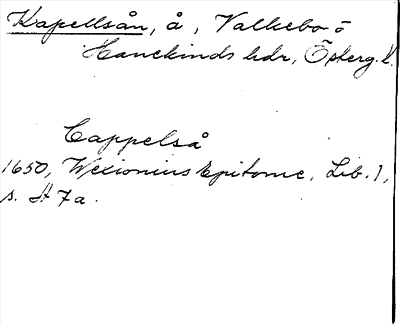 Kapellsån, å, Valkebo o
Hanekinds hdr, Österg. l.
Cappelså
1650, Wexionius Epitome, Lib. 1,
s. H 7a.